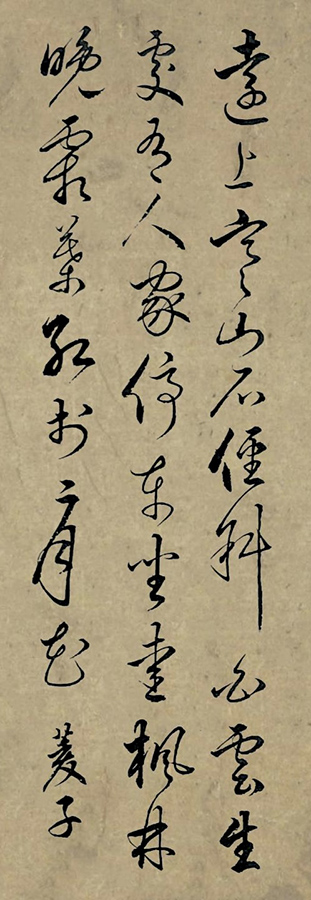 遠上寒山石径斜白雲生
處有人家停車坐愛楓林
晚霜葉紅於二月花 菱子